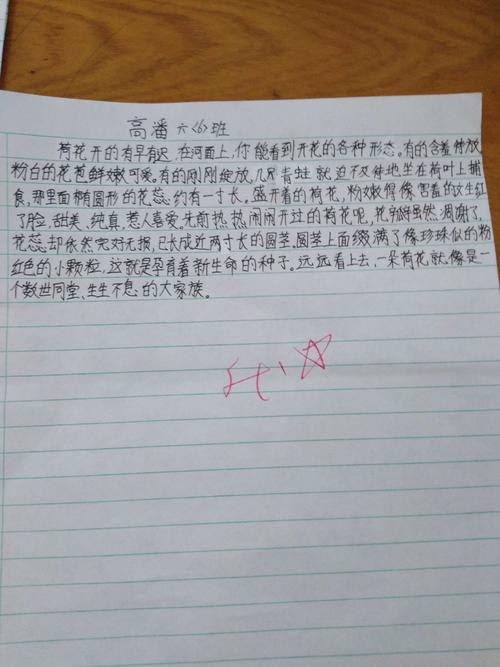 高潘六〈6〉班
荷花开的有早有迟,在河面上,你能看到开花的各种形态。有的含羞待放
粉白的花苞鲜嫩可爱,有的刚刚绽放,几只青蛙就迫不及待地坐在荷叶上捕
食,那里面椭圆形的花蕊约有一寸长。盛开着的荷花,粉嫩得像害羞的女生红
了脸,甜美、纯真、惹人喜爱。先前热热闹闹开过的荷花呢,花瓣虽然凋谢了,
花蕊却依然完好无损,已长成近两寸长的圆莛。圆莛上面缀满了像珍珠似的粉
红色的小颗粒,这就是孕育着新生命的种子。远远看上去,一朵荷花就像是一
个数世同堂、生生不息的大家族。